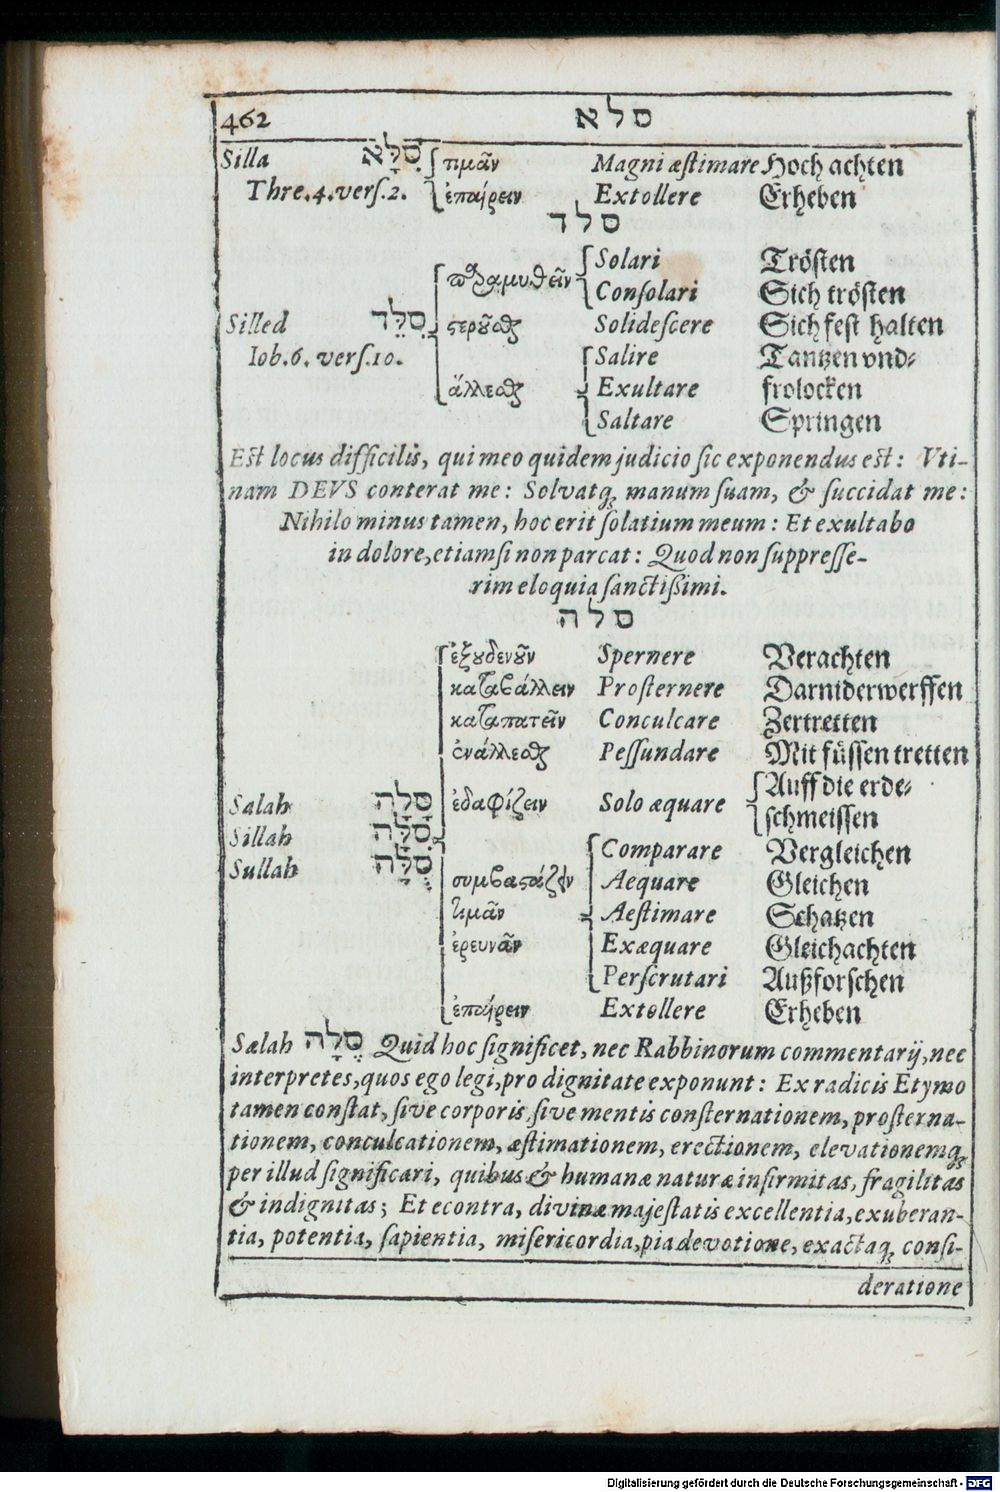 462 סלא
Silla סִלָּא τιμᾶν Magni æstimare Hoch achten
Thre. 4. vers. 2. ἐπαίρειν Extollere Erheben
סלד
Solari Trösten
παραμυθεῖν Consolari Sich trösten
Silled סִלֵּד στερρῦσθαι Solidescere Sich fest halten
Iob. 6. vers. 10. Salire Tantzen vnd-
ἅλλεσθαι Exultare frolocken
Saltare Springen
Est locus difficilis, qui meo quidem judicio sic exponendus est: Vti-
nam DEVS conterat me: Solvatq; manum suam, & succidat me:
Nihilo minus tamen, hoc erit solatium meum: Et exultabo
in dolore, etiamsi non parcat: Quod non suppresse-
rim eloquia sanctißimi.
סלה
ἐξουδενοῦν Spernere Verachten
καταβάλλειν Prosternere Darniderwerffen
καταπατεῖν Conculcare Zertretten
ἐνάλλεσθαι Pessundare Mit füssen tretten
Auff die erde-
Salah סָלָה ἐδαφίζειν Solo æquare schmeissen
Sillah סִלָּה
Comparare Vergleichen
Sullah סֻלָּה συμβαστάζειν Aequare Gleichen
τιμᾶν Aestimare Schatzen
ἐρευνᾶν Exæquare Gleichachten
Perscrutari Außforschen
ἐπαίρειν Extollere Erheben
Sælah סֶלָה Quid hoc significet, nec Rabbinorum commentarij, nec
interpretes, quos ego legi, pro dignitate exponunt: Ex radicis Etymo
tamen constat, sive corporis, sive mentis consternationem, prosterna-
tionem, conculcationem, æstimationem, erectionem, elevationemq;
per illud significari, quibus & humanæ naturæ infirmitas, fragilitas
& indignitas; Et econtra, divinæ majestatis excellentia, exuberan-
tia, potentia, sapientia, misericordia, pia devotione, exactaq; consi-
deratione
Digitalisierung gefördert durch die Deutsche Forschungsgemeinschaft - DFG